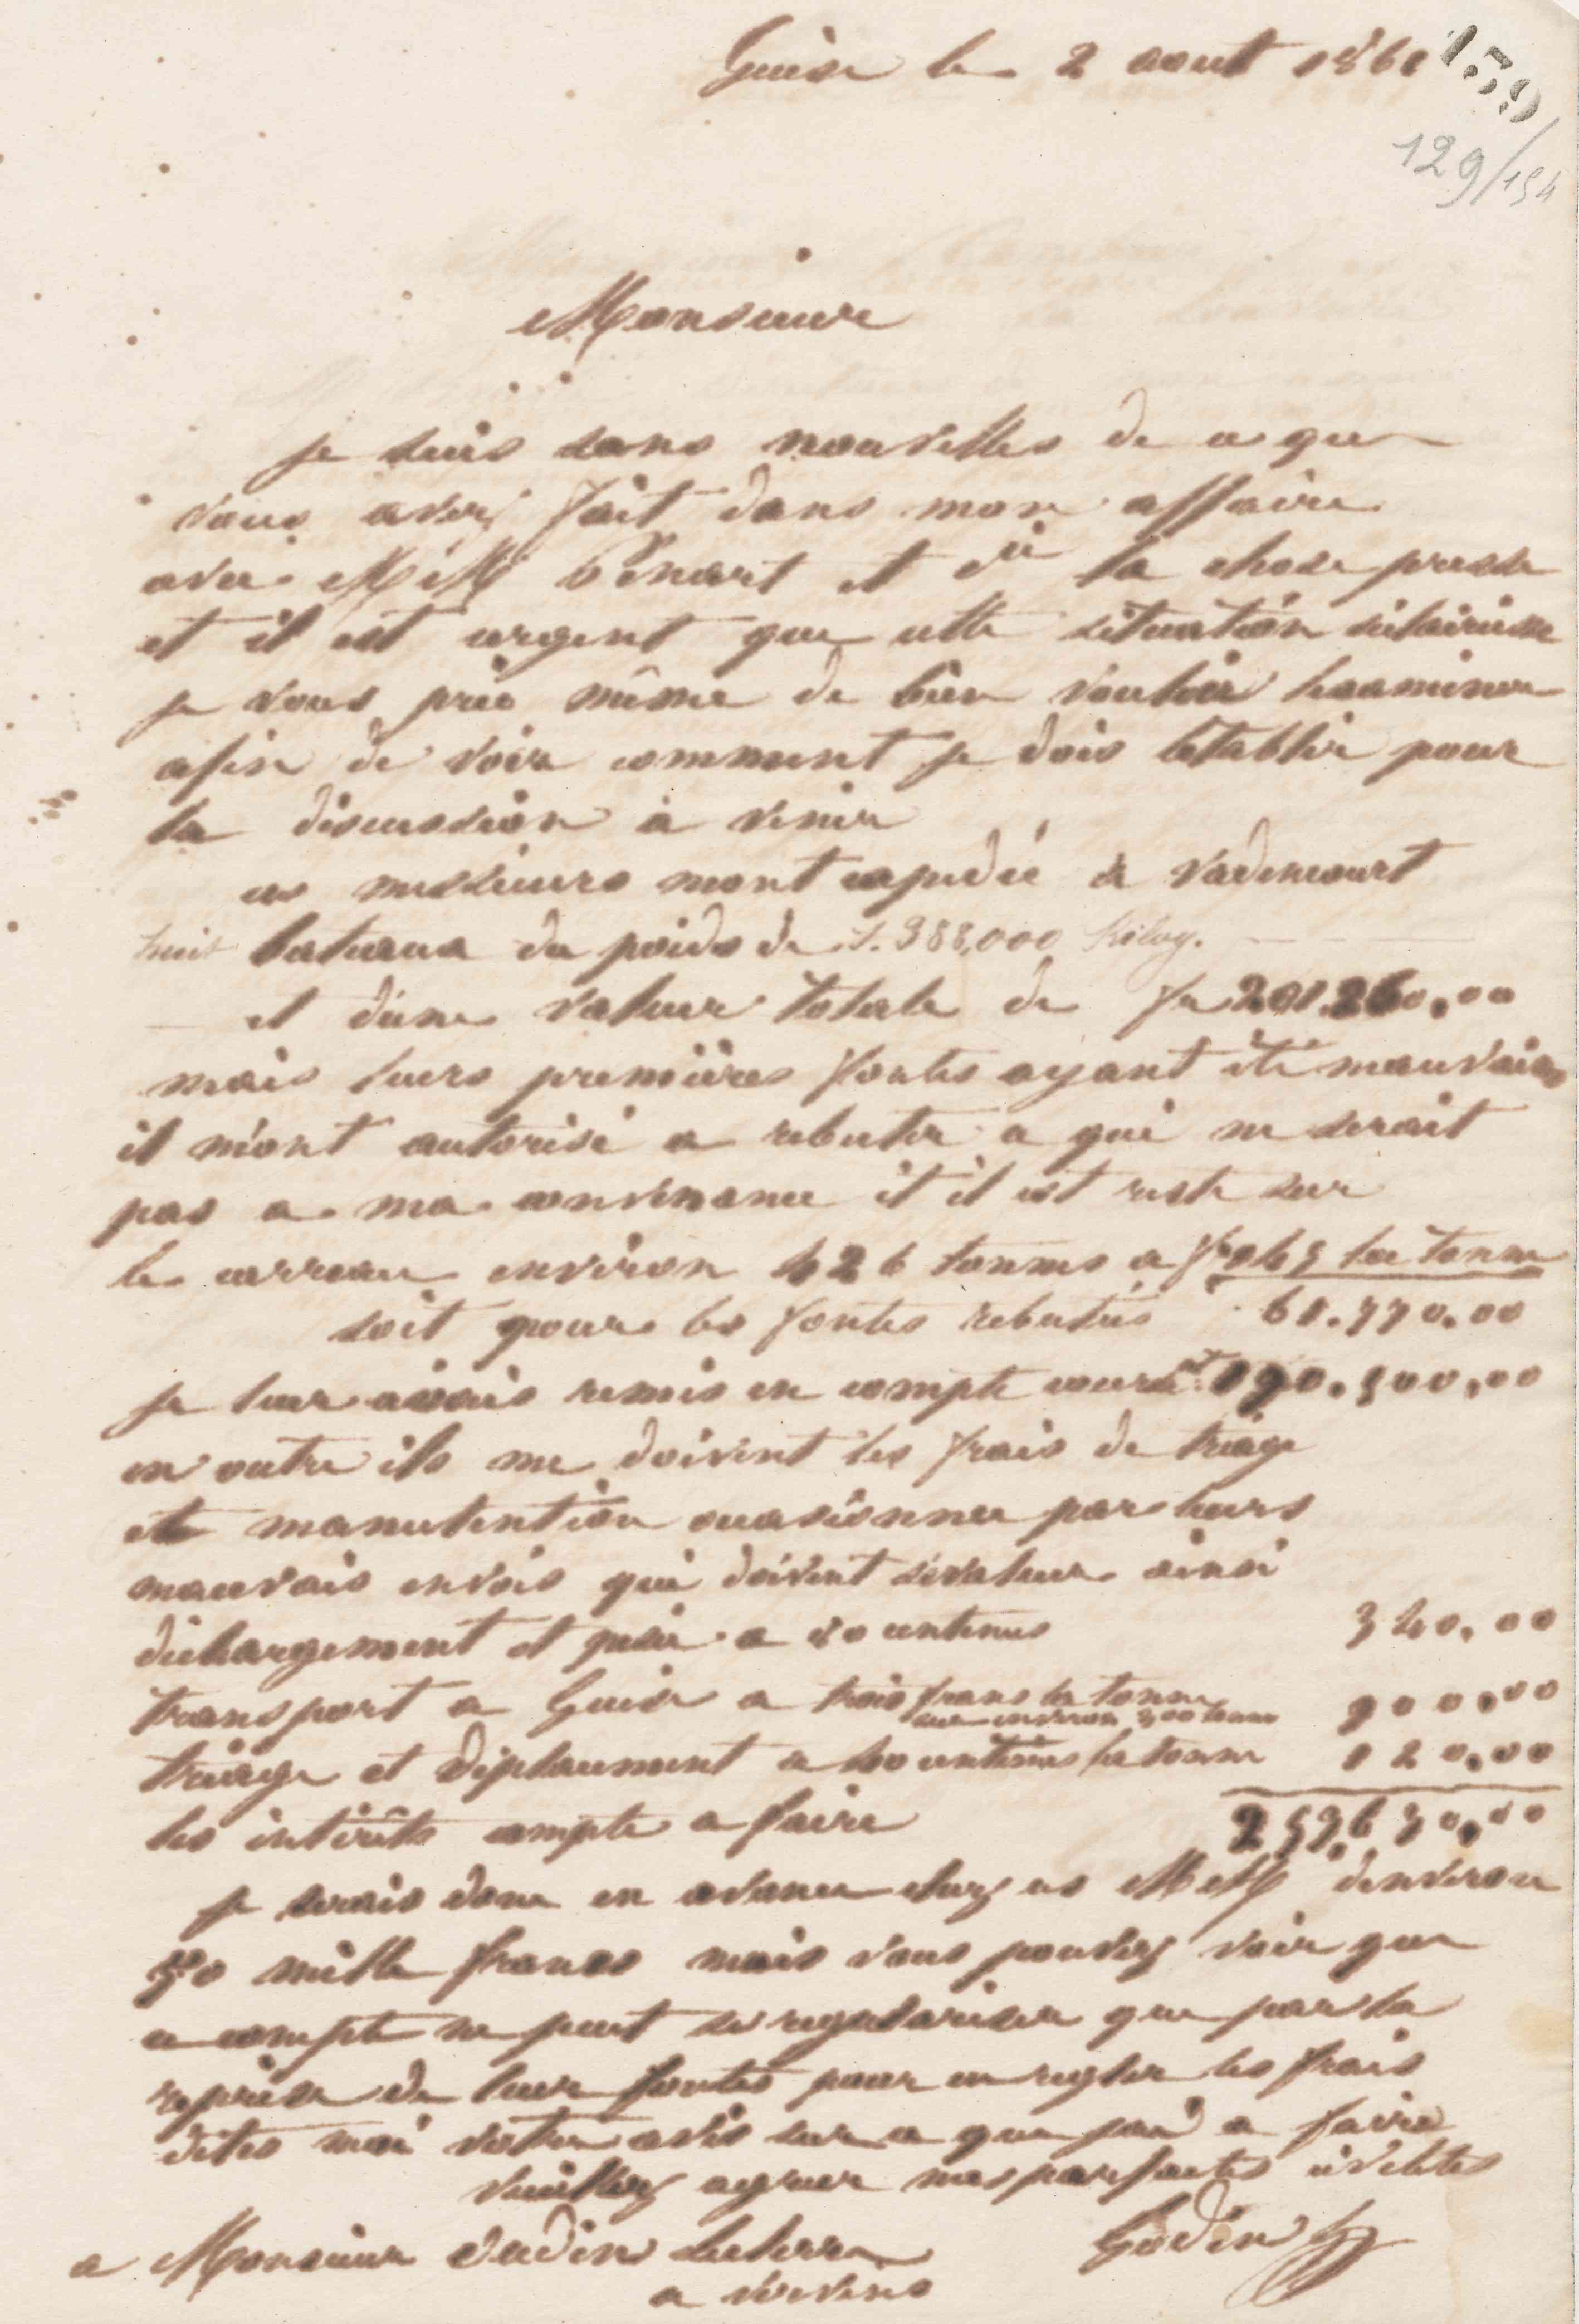 Guise le 2 aout 1861
159
129/194
Monsieur
je suis sans nouvelles de ce que
vous avez fait dans mon affaire
avec MM Benart et Cie la chose presse
et il est urgent que cette situation séclairisse
je vous prie même de bien vouloir lexaminer
afin de voir comment je dois létablir pour
la discussion à venir
ces messieurs mont expedié à Vadencourt
huit bateaux du poids de 1.388,000 Kilog.
et dune valeur totale de fr 201.260,00
mais leurs premières fontes ayant été mauvaises
il m'ont autorisé a rebuter ce qui ne serait
pas a ma convenance et il est resté sur
le carreau environ 426 tonnes a fr 145 la tonne
soit pour les fontes rebutées 61.770.00
je leur avais remis en compte courant 190.500,00
en outre ils me doivent les frais de triage
et manutention occasionner par leurs
mauvais envois qui doivent sévaluer ainsi
déchargement et pesée a 80 centimes 340,00
transport a Guise a trois francs la tonne
sur environ 300 tonnes 900,00
triage et déplacement a 40 centimes la tonne 120,00
les intérêts compte a faire 253,630,00
je serais donc en avance chez ces MM denviron
50 mille francs mais vous pouvez voir que
ce compte ne peut se régulariser que par la
reprise de leur fontes pour en regler les frais
dites moi votre avis sur ce que jai a faire
veuillez agréer mes parfaites civilités
Godin
a Monsieur Oudin Leclerre
a Vervins